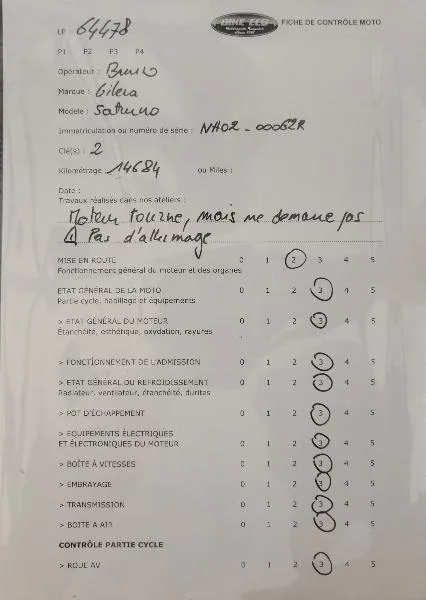 LP 64478
BIKE ECO
FICHE DE CONTRÔLE MOTO
P1 P2 P3 P4
Opérateur : Bruno
Marque : Gilera
Modèle : Saturno
Immatriculation ou numéro de série : NH02-00062R
Clé(s) : 2
Kilométrage : 14684 ou Miles :
Date :
Travaux réalisés dans nos ateliers :
Moteur tourne, mais ne demarre pas
Pas d'allumage
MISE EN ROUTE 0 1 2 3 4 5
Fonctionnement général du moteur et des organes
ETAT GÉNÉRAL DE LA MOTO 0 1 2 3 4 5
Partie cycle, habillage et équipements
> ETAT GÉNÉRAL DU MOTEUR 0 1 2 3 4 5
Étanchéité, esthétique, oxydation, rayures
> FONCTIONNEMENT DE L'ADMISSION 0 1 2 3 4 5
> ETAT GÉNÉRAL DU REFROIDISSEMENT 0 1 2 3 4 5
Radiateur, ventilateur, étanchéité, durites
> POT D'ÉCHAPPEMENT 0 1 2 3 4 5
> EQUIPEMENTS ÉLECTRIQUES
ET ÉLECTRONIQUES DU MOTEUR 0 1 2 3 4 5
> BOÎTE À VITESSES 0 1 2 3 4 5
> EMBRAYAGE 0 1 2 3 4 5
> TRANSMISSION 0 1 2 3 4 5
> BOITE A AIR 0 1 2 3 4 5
CONTRÔLE PARTIE CYCLE
> ROUE AV 0 1 2 3 4 5